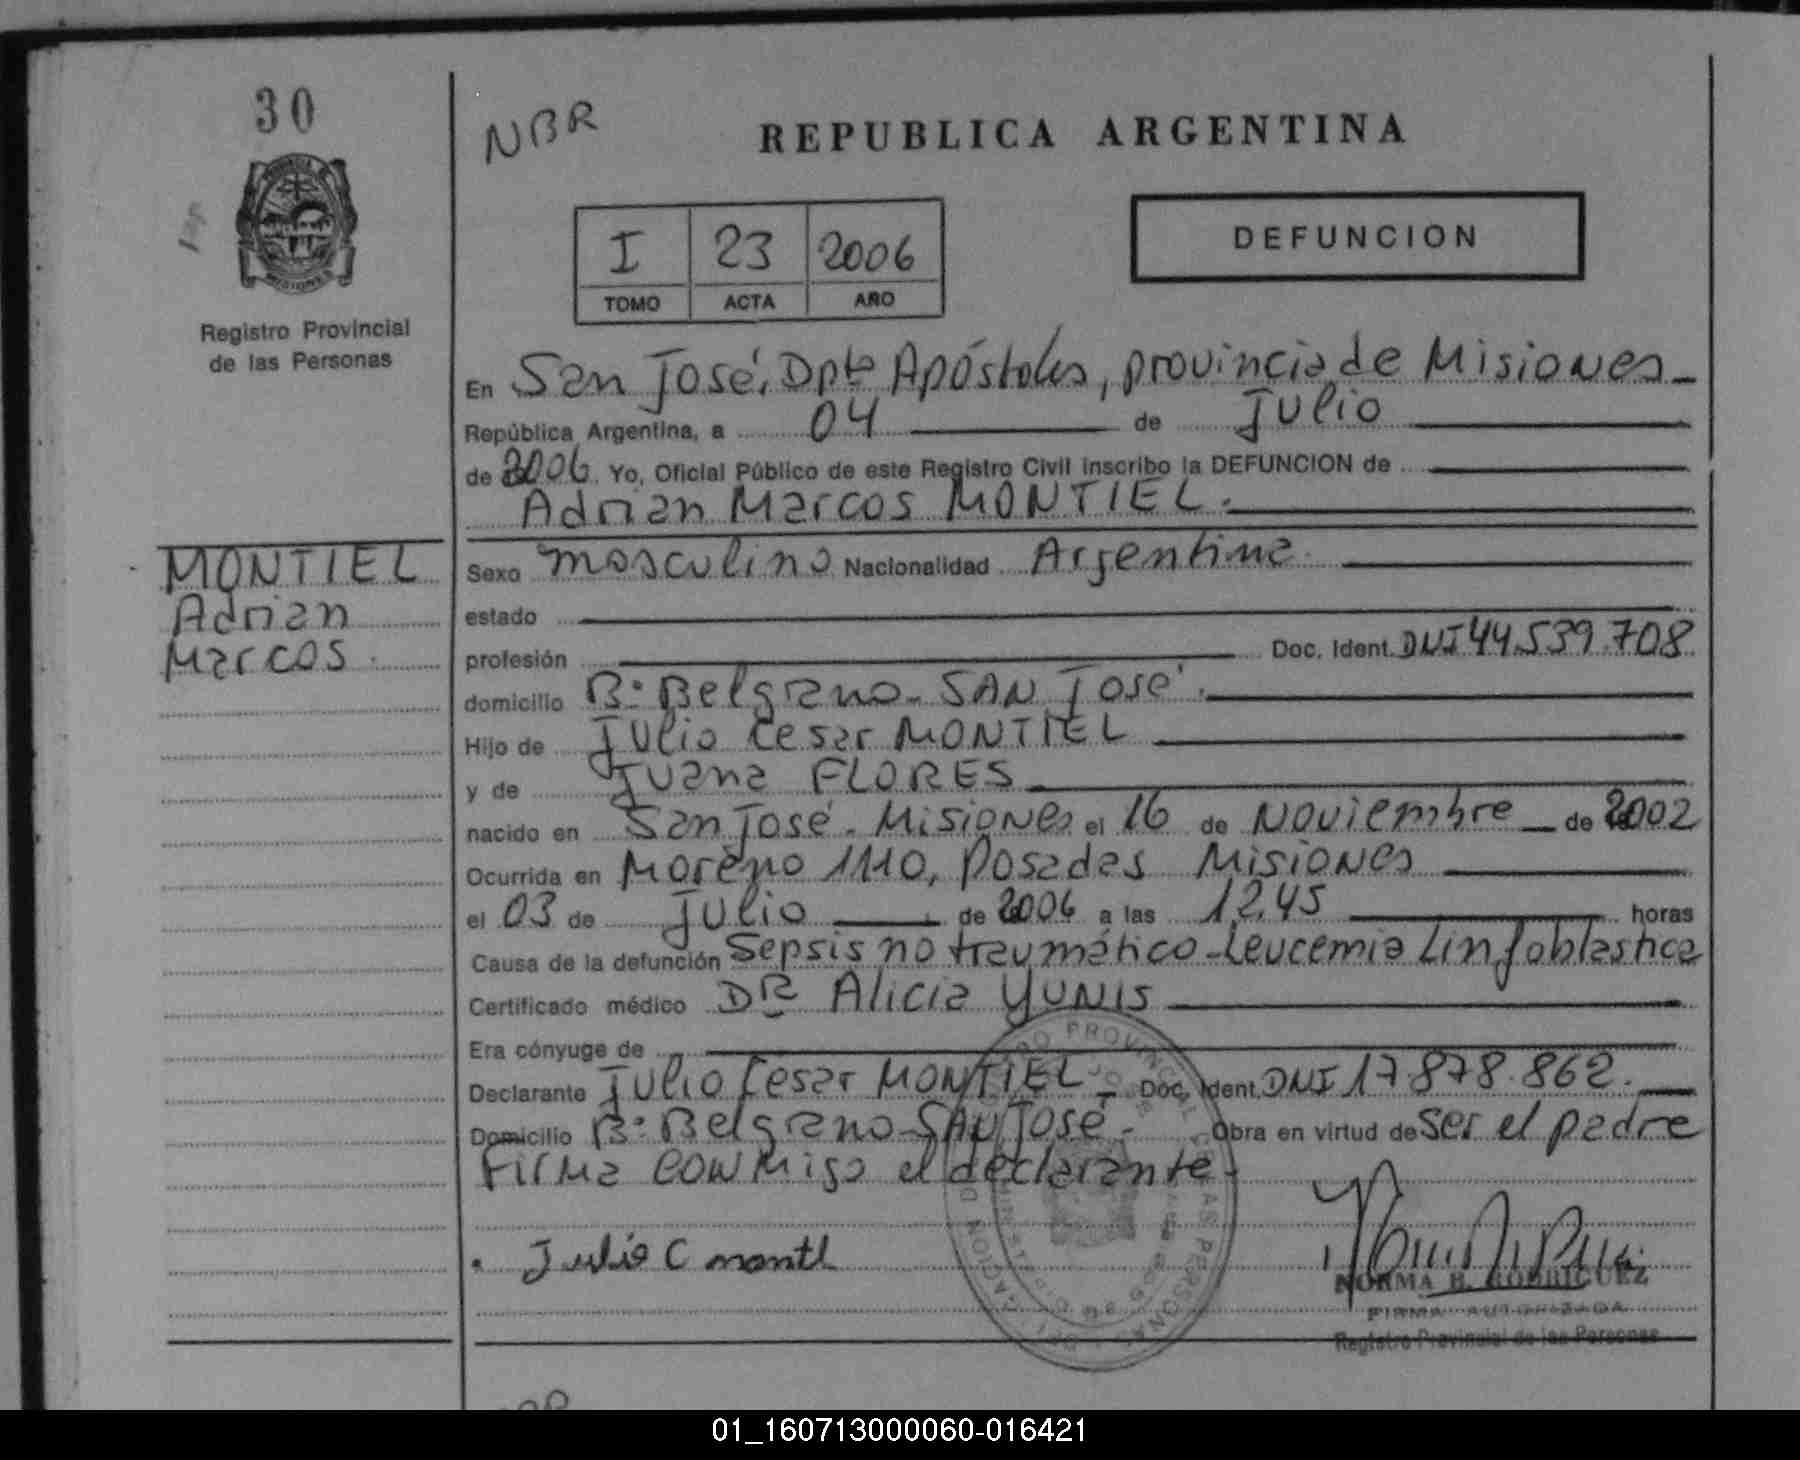 30
NBR
REPUBLICA ARGENTINA
I 23 2006
TOMO ACTA AÑO
DEFUNCION
Registro Provincial
de las Personas
En San José, Dpto Apóstoles, provincia de Misiones
República Argentina, a 04 de Julio
de 2006. Yo, Oficial Público de este Registro Civil inscribo la DEFUNCION de
Adrian Marcos MONTIEL.
MONTIEL
Adrian
Marcos.
Sexo masculino Nacionalidad Argentina
estado
profesión Doc. Ident. DNI 44.539.708
domicilio Bº Belgrano - SAN José.
Hijo de Julio Cesar MONTIEL
y de Juana FLORES
nacido en San José. Misiones el 16 de Noviembre de 2002
Ocurrida en Moreno 1110, Posadas Misiones
el 03 de Julio de 2006 a las 12,45 horas
Causa de la defunción Sepsis no traumático - Leucemia Linfoblastica
Certificado médico DRa Alicia YUNIS
Era cónyuge de
Declarante Julio Cesar MONTIEL - Doc. Ident. DNI 17.878.862.
Domicilio Bº Belgrano - SAN José. Obra en virtud de Ser el padre
Firma conmigo el declarante.
Julio C montl
NORMA B. RODRIGUEZ
FIRMA AUTORIZADA
Registro Provincial de las Personas
01_160713000060-016421